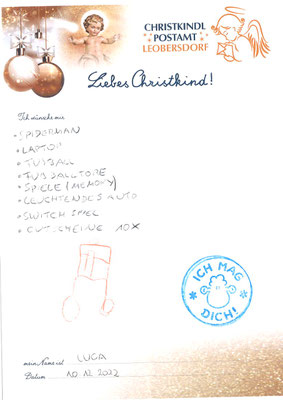 CHRISTKINDL
POSTAMT
LEOBERSDORF
Liebes Christkind!
Ich wünsche mir
• SPIDERMAN
• LAPTOP
• FUßBALL
• FUßBALLTORE
• SPIELE (MEMORY)
• LEUCHTENDES AUTO
• SWITCH SPIEL
• GUTSCHEINE 10X
ICH MAG
DICH!
mein Name ist LUCA
Datum 10.12.2022